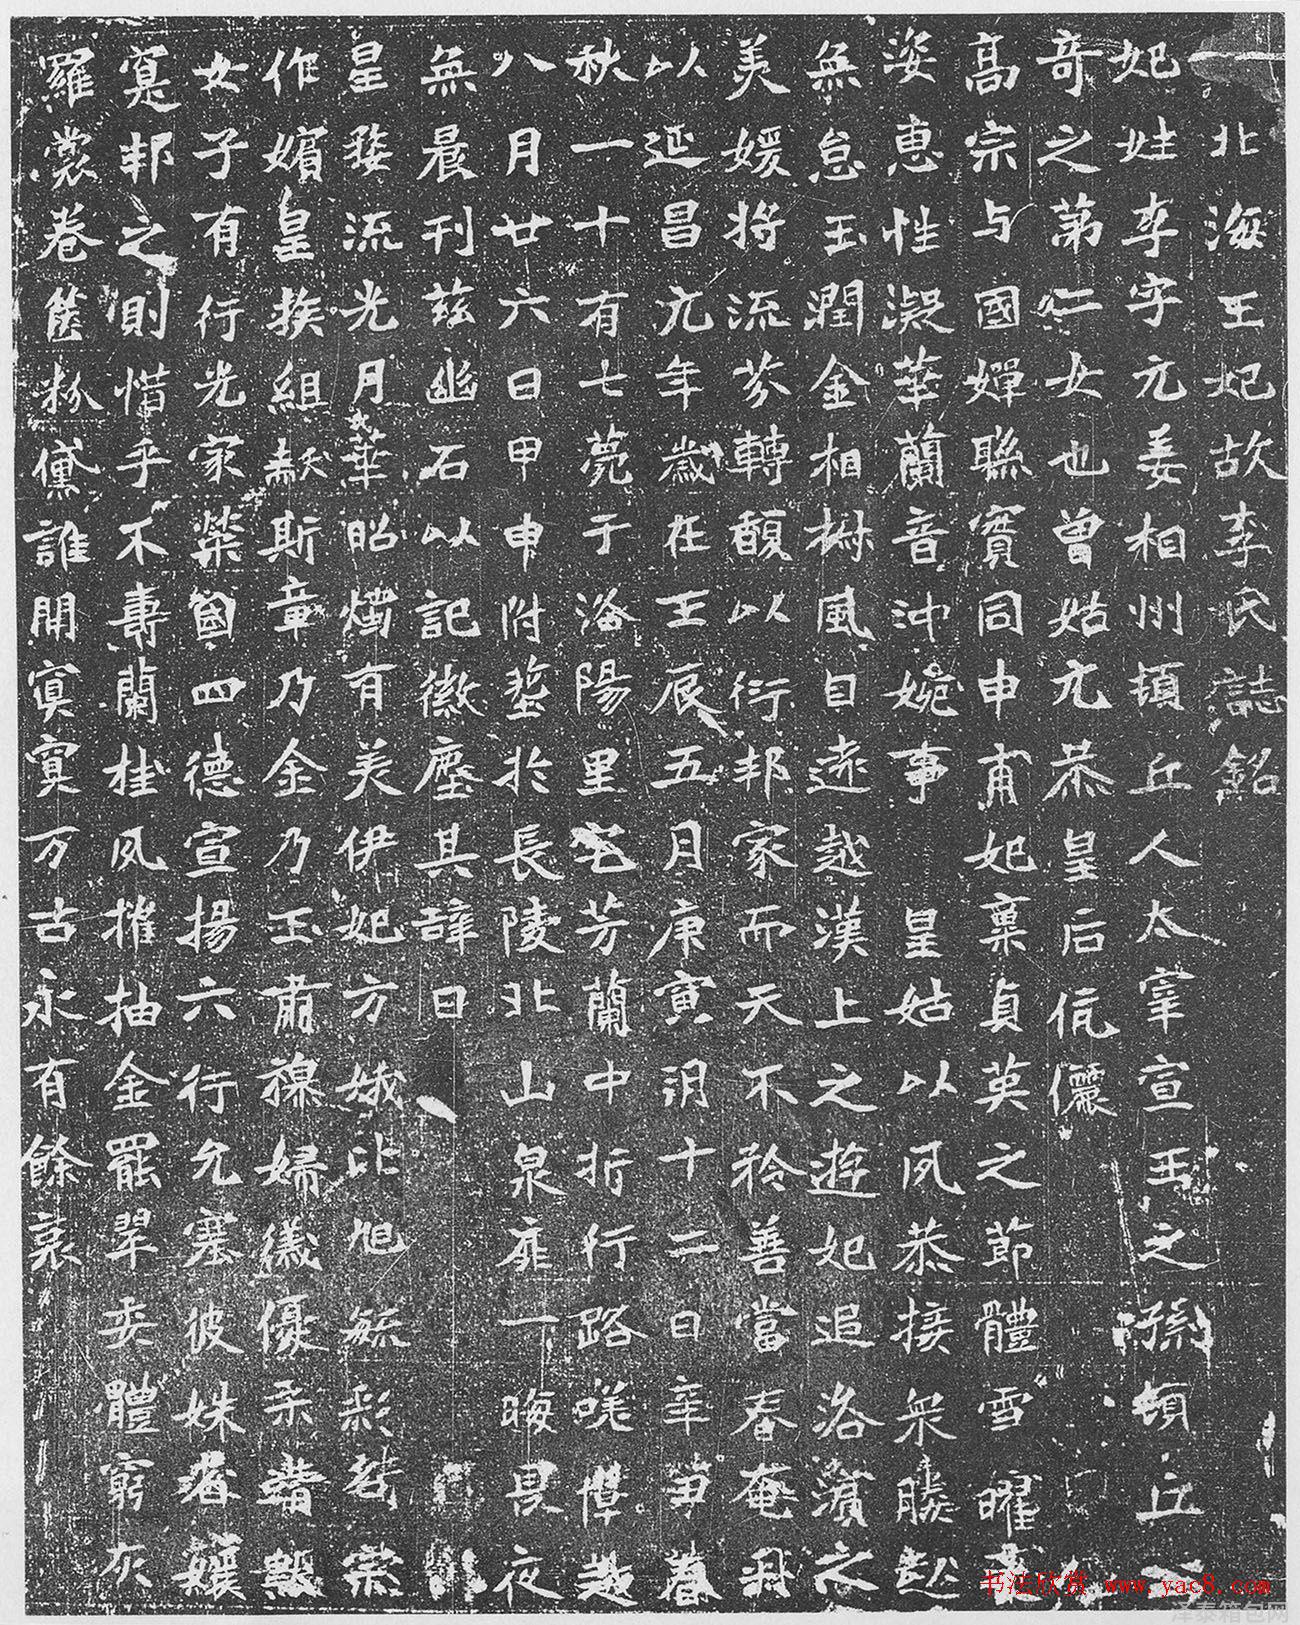 北海王妃故李氏誌銘
妃姓李字元姜相州頓丘人太宰宣王之孫頓丘
奇之第二女也曾姑元恭皇后伉儷
高宗与國嬋聯賓同申甫妃稟貞英之節體雪曜
姿惠性凝華蘭音沖婉事皇姑以夙恭接眾媵
無怠玉潤金相樹風自遠越漢上之遊妃追洛濱之
美媛將流芬轉馥以衍邦家而天不矜善當春奄
以延昌元年歲在壬辰五月庚寅朔十二日辛丑春
秋一十有七薨于洛陽里宅芳蘭中折行路嗟憚
八月廿六日甲申附塟於長陵北山泉扉一晦畏夜
無晨刊茲幽石以記徽塵其辭曰
皇婺流光月華昭燭有美伊妃方娥比旭毓彩
作嬪皇族組黻斯章乃金乃玉肅穆婦儀優柔
女子有行光家榮國四德宣揚六行允塞彼姝
寔邦之則惜乎不壽蘭桂夙摧抽金罷翠委體窮灰
羅裳卷篋粉黛誰開寞寞万古永有餘哀
书法欣赏 www.yac8.com
泽泰箱包网